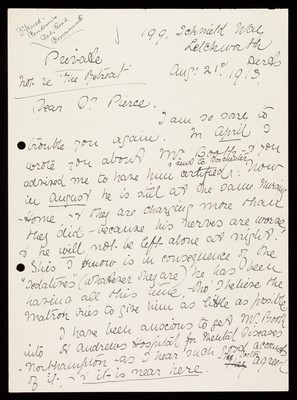 199. Icknield Way
Letchworth
Herts
Aug: 21st 1913.
Private
not re The Retreat
Dear Dr Pierce.
I am so sorry to
trouble you again. In April I
wrote you about Mr Booth - & you
advised me to have him certified: now
in August he is still at the same Nursing
Home - & they are charging more than
they did - because his nerves are worse,
& he will not be left alone at night.
This I know is in consequence of the
"Sedatives" (whatever they are) he has been
having all this time. - tho' I believe the
Matron tries to give him as little as possible
I have been anxious to get Mr Booth
into St Andrews Hospital for Mental Diseases
Northampton - as I hear such good accounts
of it. & it is near here.